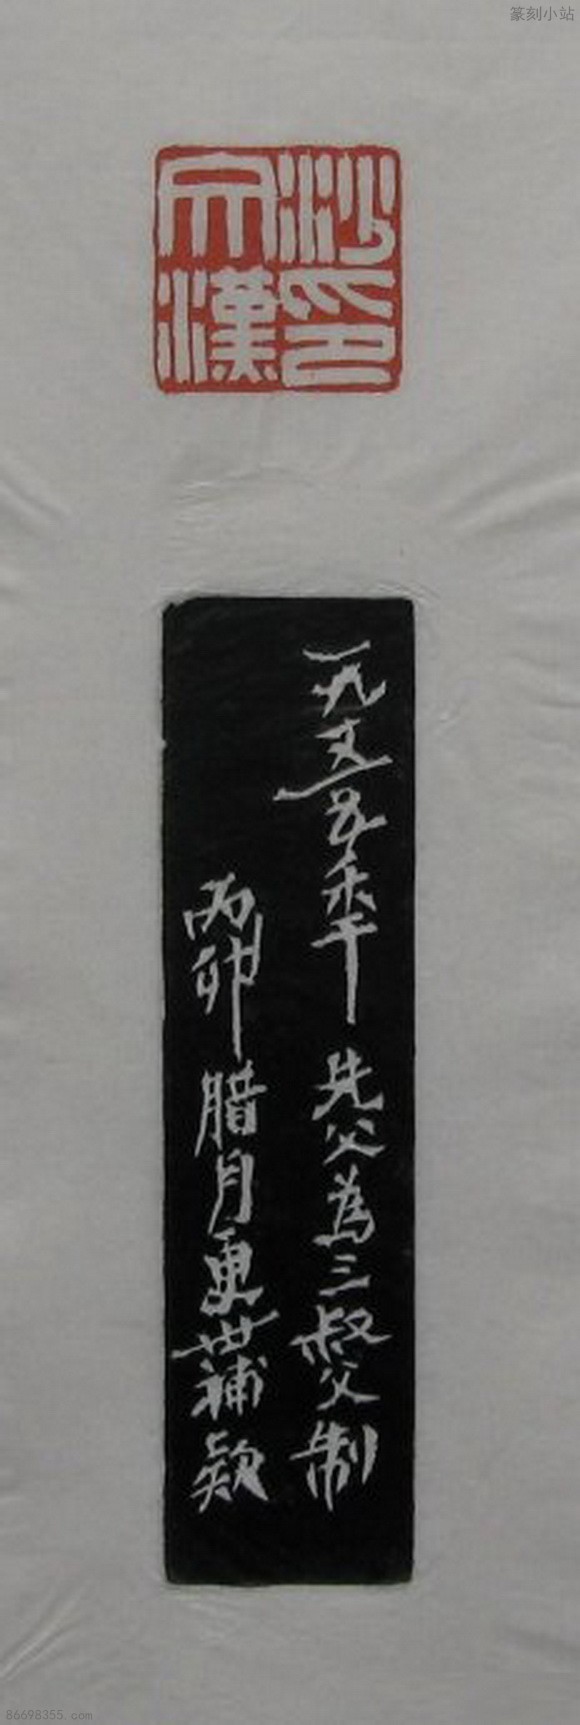 篆刻小站
沙文漢印
一九五五秊 先父為三叔父制
丙卯腊月更世補款
86698355.com